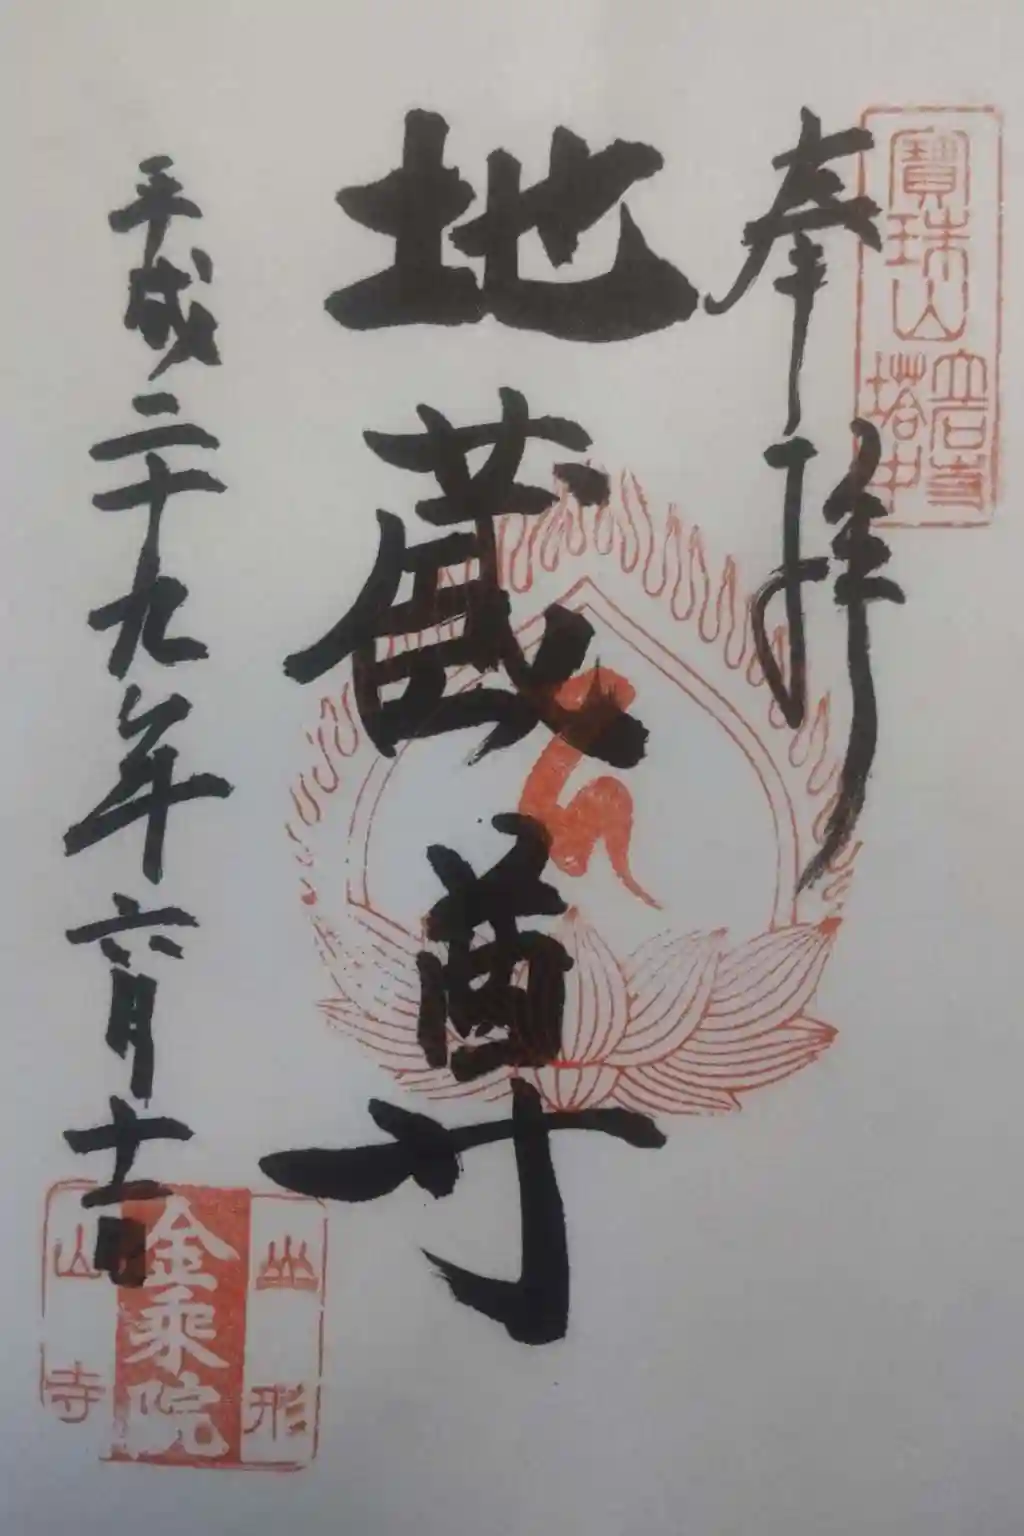 寶珠山
立石寺
塔中
奉拝
地蔵尊
平成二十九年六月十一日
山形
金乘院
山寺